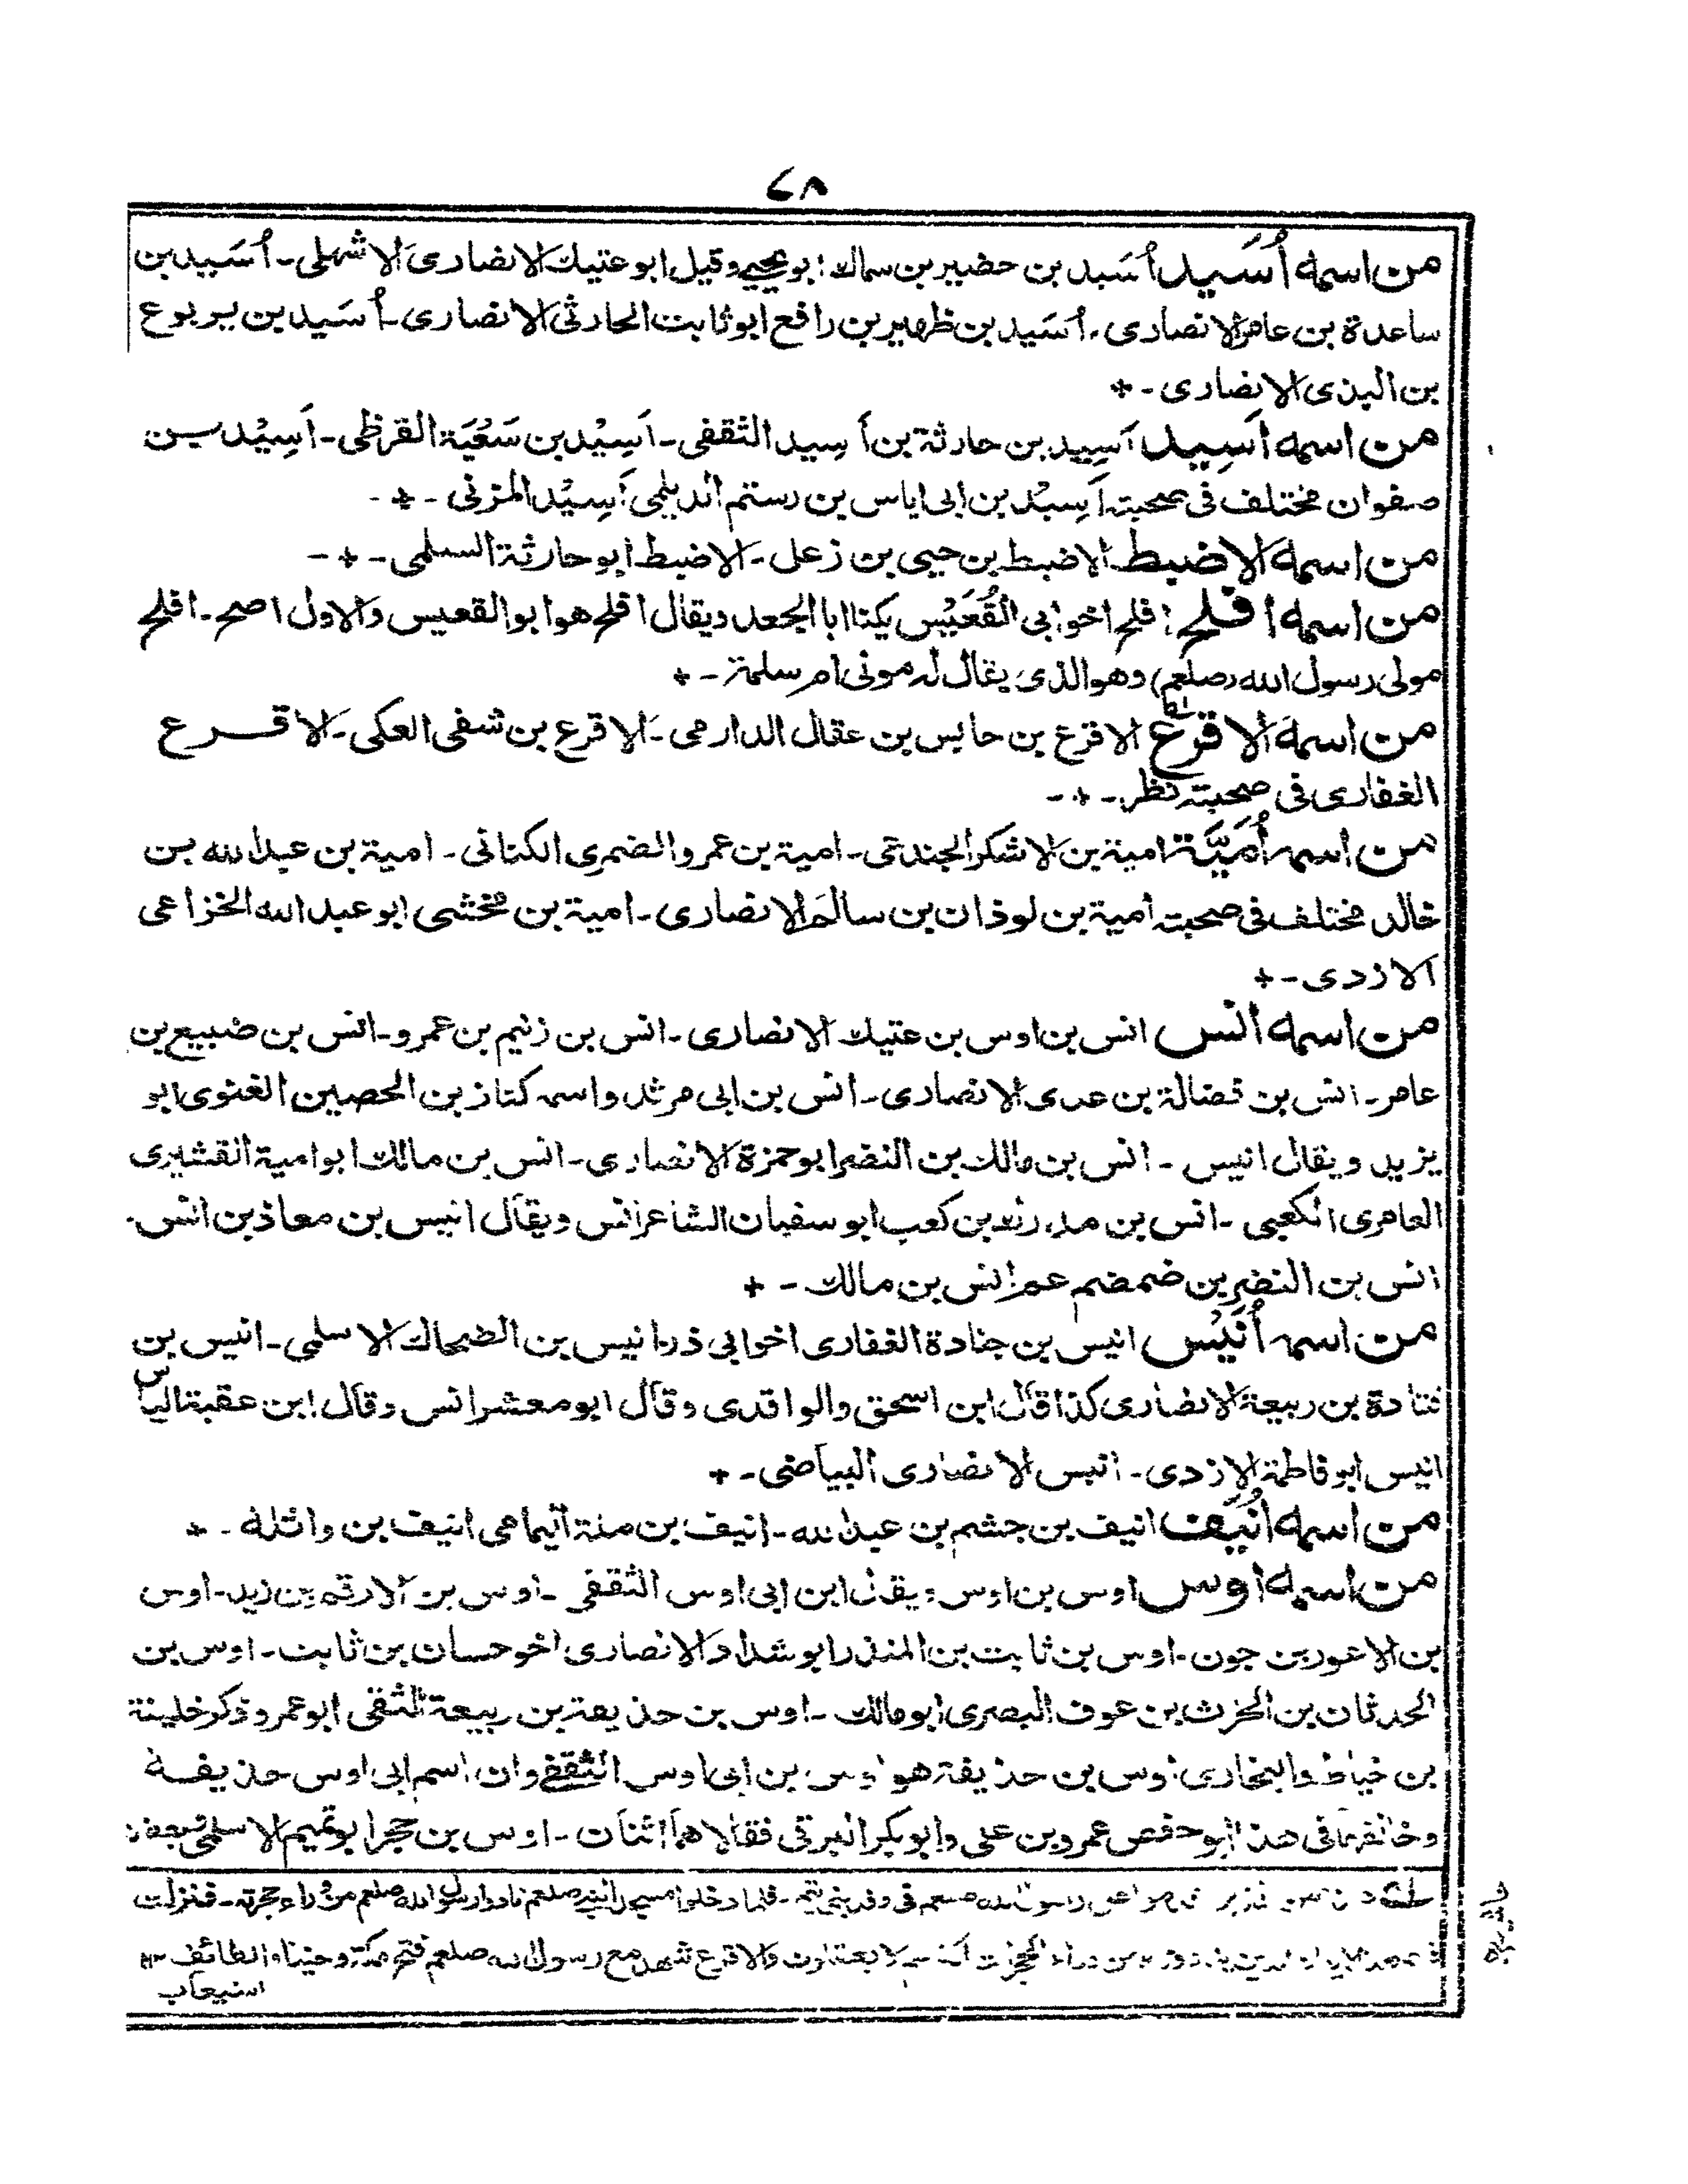 ٢٨
من اسمه أُسَيد أُسَيد بن حضير بن سماك ابو يحيى وقيل ابو عتيك الانصارى الاشهلى ـ أُسَيد بن
ساعدة بن عامر الانصارى ـ أُسَيد بن ظهير بن رافع ابو ثابت الحارثى الانصارى ـ أُسَيد بن يربوع
بن البدى الانصارى ـ +
من اسمه اَسِيد اَسِيد بن حارثة بن أسيد الثقفى ـ اَسِيْد بن سَعْيَة القرظى ـ اَسِيْد بن
صفوان مختلف فى صحبته اَسِيْد بن ابى اياس بن رستم الديلمى اَسِيْد المزنى ـ + ـ
من اسمه الاضبط الاضبط بن حيى بن زعل ـ الاضبط ابو حارثة السلمى ـ + ـ
من اسمه افلح افلح اخو ابى القُعَيْس يكنا ابا الجعد ويقال افلح هو ابو القعيس والاول اصح ـ افلح
مولى رسول الله (صلعم) وهو الذى يقال له مولى ام سلمة ـ +
من اسمه الاقرع الاقرع بن حابس بن عقال الدارمى ـ الاقرع بن شفى العكى ـ الاقرع
الغفارى فى صحبته نظر ـ + ـ
من اسمه أُمَيَّة امية بن الاشكر الجندعى ـ امية بن عمرو الضمرى الكنانى ـ امية بن عبد الله بن
خالد مختلف فى صحبته امية بن لوذان بن سالم الانصارى ـ امية بن مخشى ابو عبد الله الخزاعى
الازدى ـ +
من اسمه انس انس بن اوس بن عتيك الانصارى ـ انس بن زنيم بن عمرو ـ انس بن ضبيع بن
عامر ـ انس بن فضالة بن عدى الانصارى ـ انس بن ابى مرثد واسمه كناز بن الحصين الغنوى ابو
يزيد ويقال انيس ـ انس بن مالك بن النضر ابو حمزة الانصارى ـ انس بن مالك ابو امية القشيرى
العامرى الكعبى ـ انس بن مدرك بن كعب ابو سفيان الشاعر انس ويقال انيس بن معاذ بن انس ـ
انس بن النضر بن ضمضم عم انس بن مالك ـ +
من اسمه أُنَيْس انيس بن جنادة الغفارى اخو ابى ذر انيس بن الضحاك الاسلمى ـ انيس بن
قتادة بن ربيعة الانصارى كذا قال ابن اسحق والواقدى وقال ابو معشر انس وقال ابن عقبة الياس
انيس ابو فاطمة الازدى ـ انيس الانصارى البياضى ـ +
من اسمه اُنَيف انيف بن جشم بن عبد الله ـ انيف بن ملة اليمامى انيف بن واثلة ـ +
من اسمه اوس اوس بن اوس ويقال ابن ابى اوس الثقفى ـ اوس بن الارقم بن زيد ـ اوس
بن الاعور بن جون ـ اوس بن ثابت بن المنذر ابو شداد الانصارى اخو حسان بن ثابت ـ اوس بن
الحدثان بن الحرث بن عوف البصرى ابو مالك ـ اوس بن حذيفة بن ربيعة الثقفى ابو عمرو ذكر خليفة
بن خياط والبخارى اوس بن حذيفة هو اوس بن ابى اوس الثقفى وان اسم ابى اوس حذيفة
وخالفهما فى هذا ابو حفص عمرو بن على وابو بكر البرقى فقالا هما اثنان ـ اوس بن حجر ابو تميم الاسلمى
رسول الله صلعم فى وفد بنى تميم ـ فلما دخلوا مسجد النبى صلعم نادوا رسول الله صلعم من وراء حجرته ـ فنزلت
من وراء الحجرات اكثرهم لا يعقلون والاقرع شهد مع رسول الله صلعم فتح مكة وحنينا والطائف ١٢
استيعاب